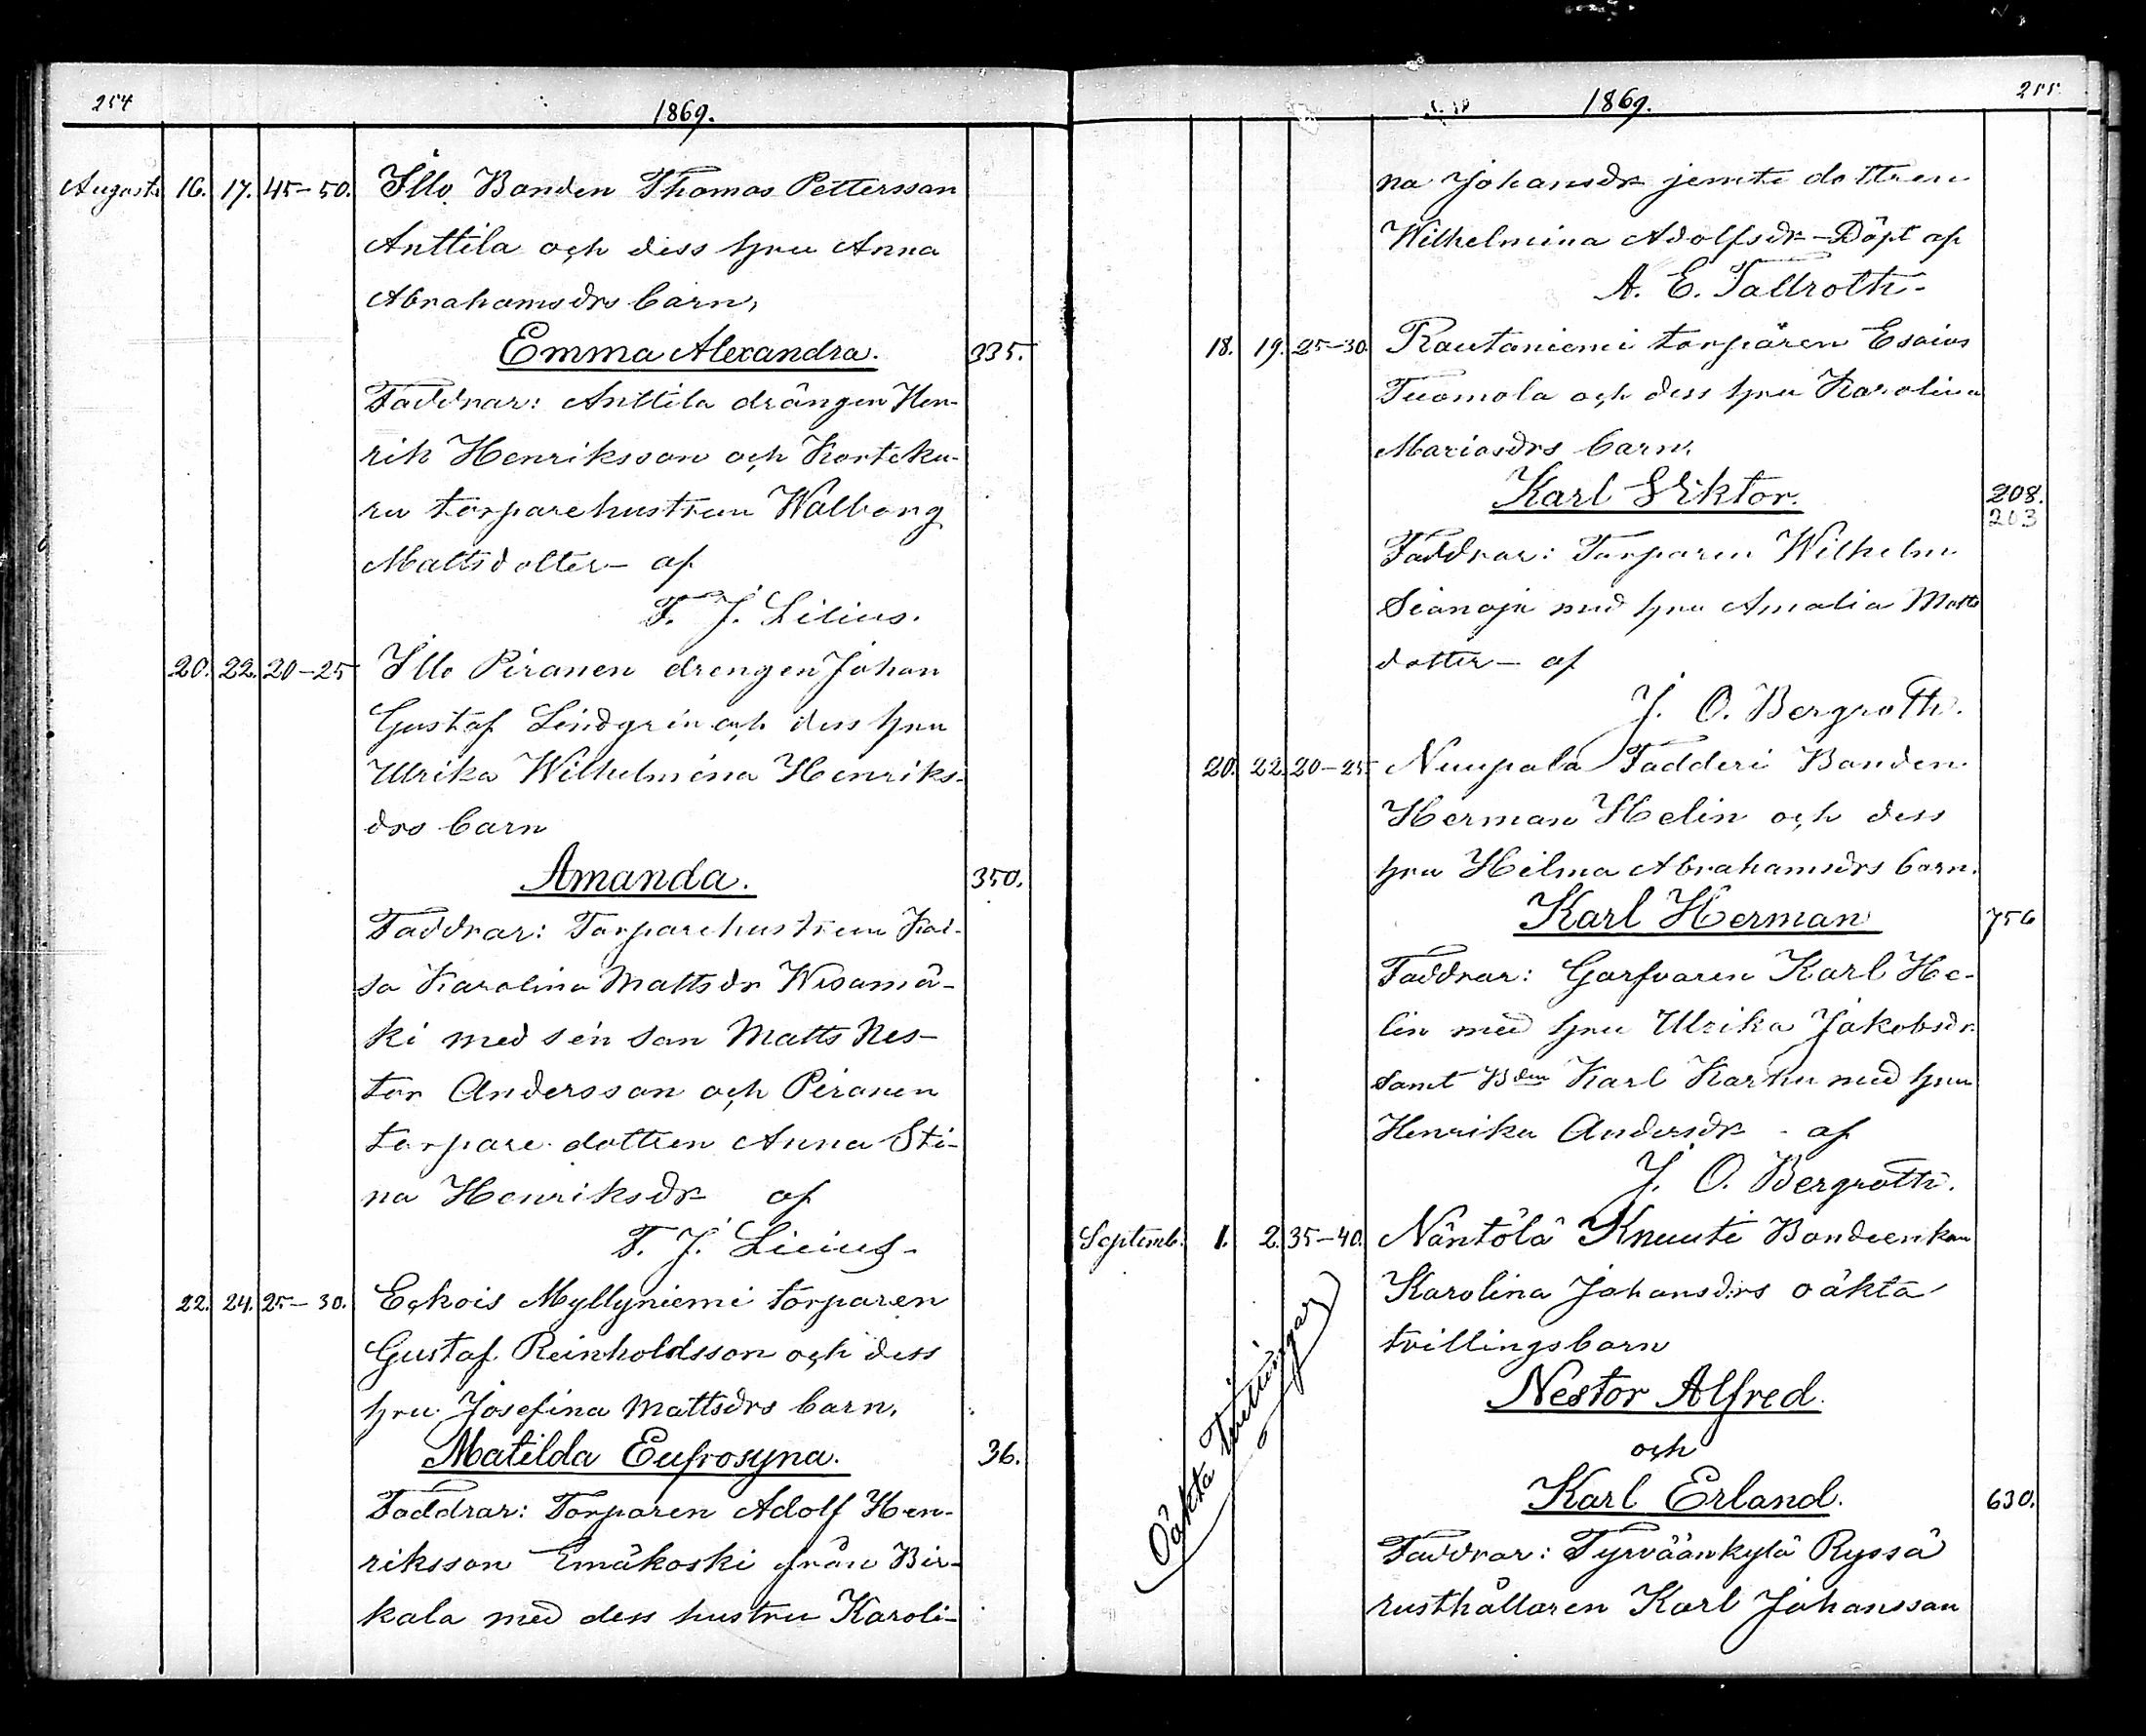 254
1869.
Augusti 16. 17. 45-50. Illo Bonden Thomas Pettersson
Anttila och dess hru Anna
Abrahamsdrs barn,
Emma Alexandra. 335.
Faddrar: Anttila drängen Hen-
rik Henriksson och Korteku-
ru torparehustrun Walborg
Mattsdotter - af
F. J. Lilius.
20. 22. 20-25 Illo Piranen drengen Johan
Gustaf Lindgrin och dess hru
Ulrika Wilhelmina Henriks-
drs barn
Amanda. 350.
Faddrar: Torparehustrun Kai-
sa Karolina Mattsdr Wisamä-
ki med sin son Matts Nes-
tor Andersson och Piranen
torpare dottren Anna Sti-
na Henriksdr af
F. J. Lilius-
22. 24. 25-30. Eckois Myllyniemi torparen
Gustaf Reinholdsson och dess
hru Josefina Mattsdrs barn,
Matilda Eufrosyna. 36.
Faddrar: Torparen Adolf Hen-
riksson Emäkoski från Bir-
kala med dess hustru Karoli-
255.
1869.
na Johansdr jemte dottren
Wilhelmina Adolfsdr - Döpt af
A. E. Tallroth-
18. 19. 25-30. Rautaniemi torparen Esaias
Tuomola och dess hru Karolina
Mariasdrs barn,
Karl Viktor. 208.
203
Faddrar: Torparen Wilhelm
med hru Amalia Matts
dotter - af
J. O. Bergroth.
20. 22. 20-25 Nuupala Fadderi Bonden
Herman Helin och dess
hru Hilma Abrahamsdrs barn.
Karl Herman 756
Faddrar: Garfvaren Karl He-
lin med hru Ulrika Jakobsdr
samt Bden Karl Karhu med hru
Henrika Andersdr - af
J. O. Bergroth.
Septemb. 1. 2. 35-40. Näntölä Knuuti Bondeenkan
Karolina Johansdrs oäkta
tvillingsbarn
Nestor Alfred.
och
Karl Erland. 630.
Oäkta tvillingar
Faddrar: Tyrväänkylä Ryssä
rusthållaren Karl Johansson